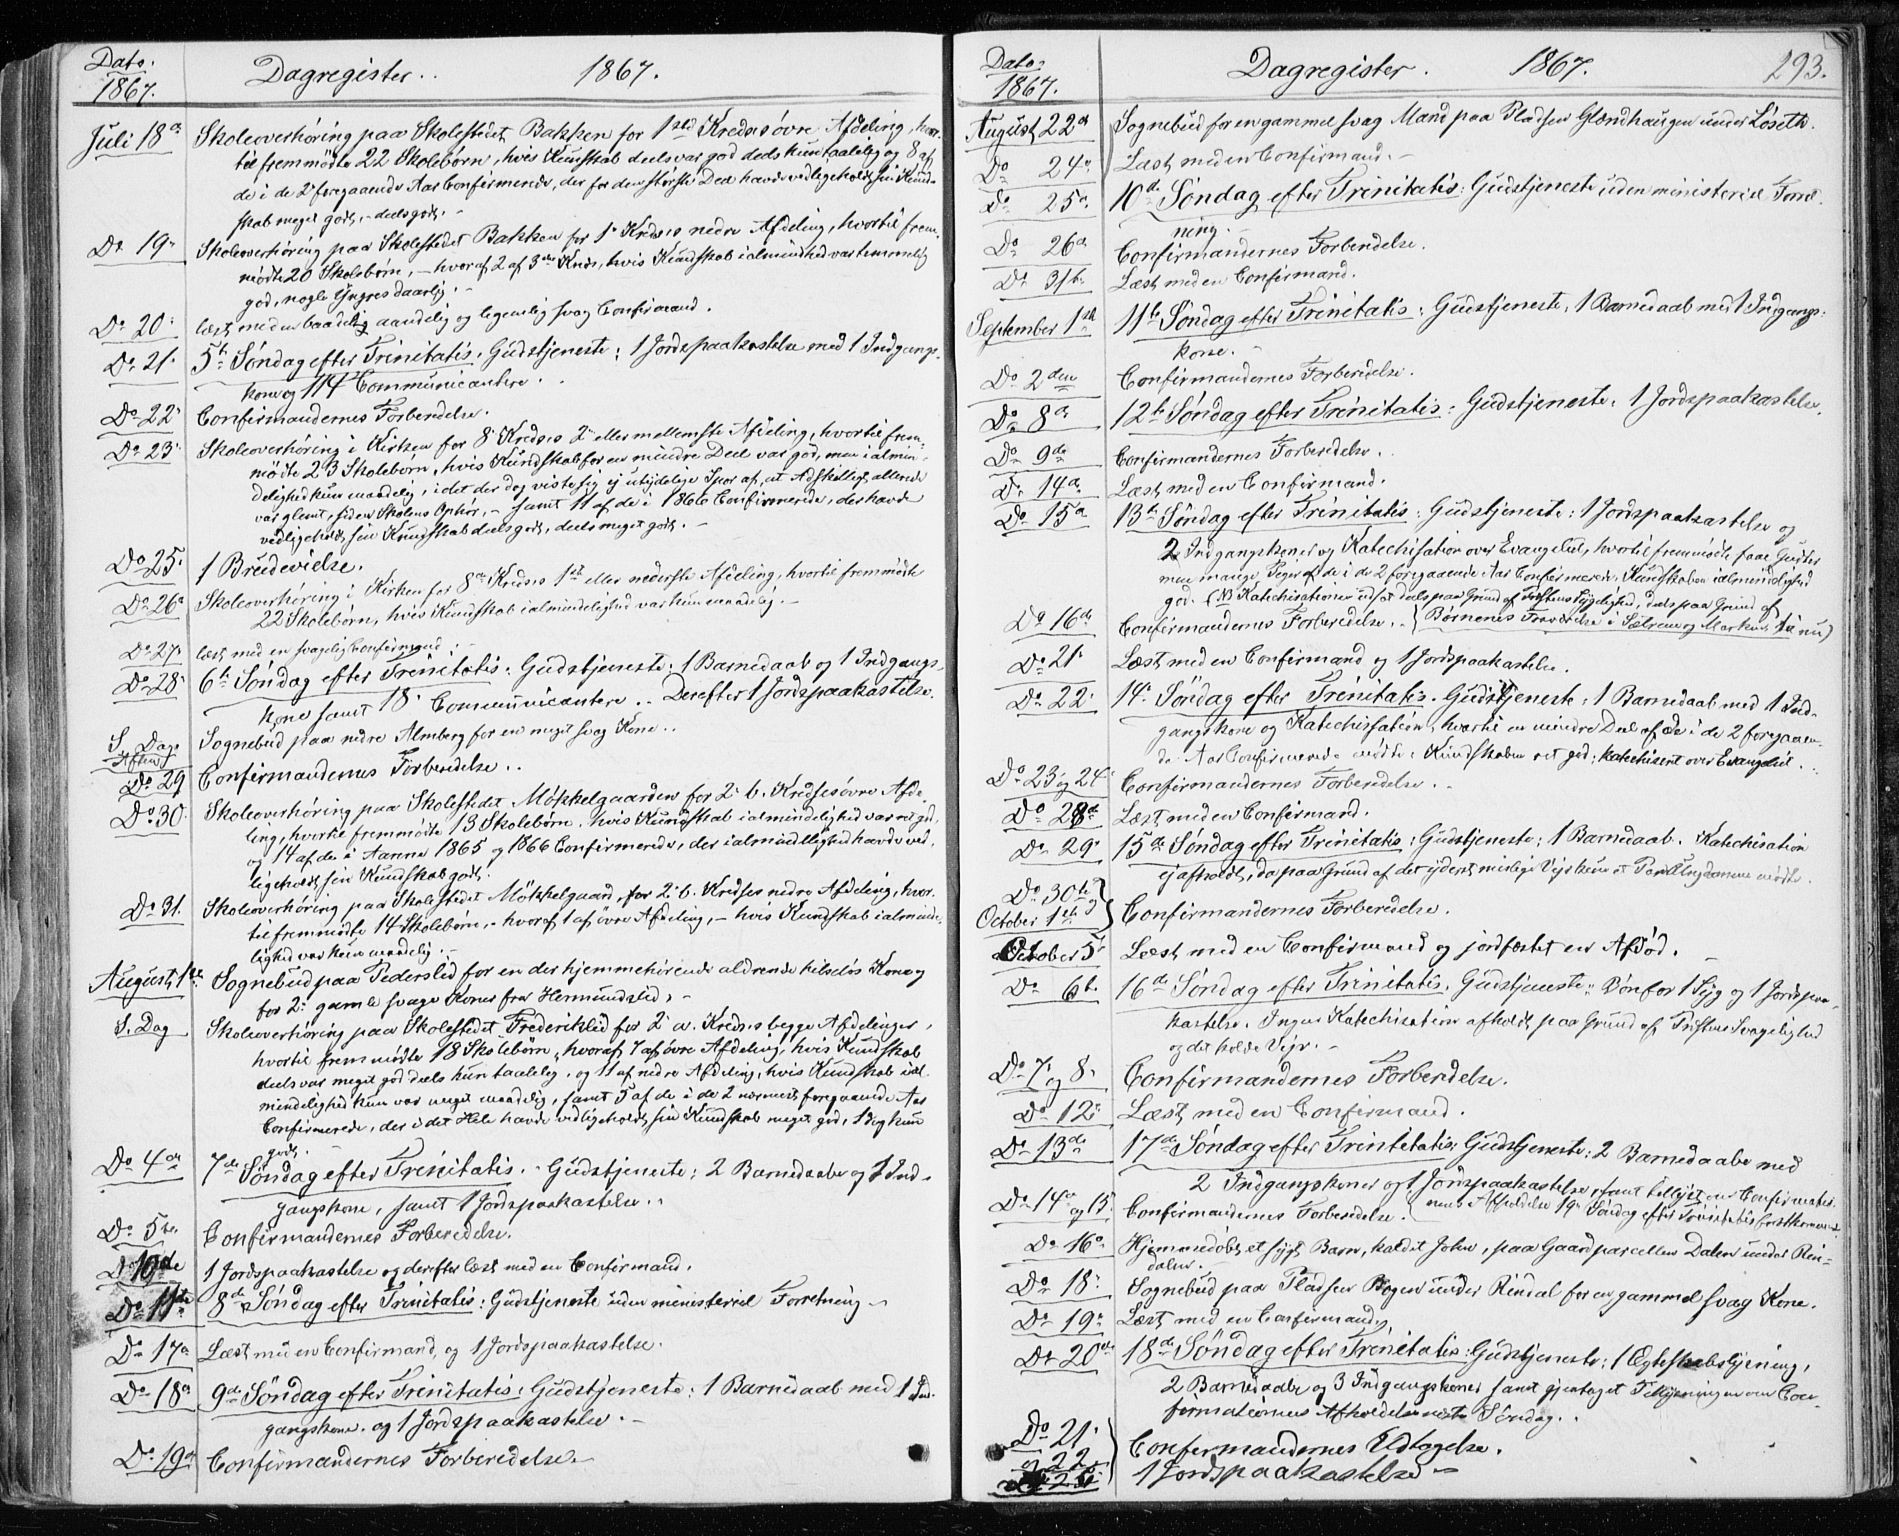 Dato. Dagregister. 1867.
1867.
Juli 18de Skoleoverhøring paa Skolestedet Bakken for 1ste Kredses øvre Afdeling, hvor-
til fremmødte 22 Skolebørn, hvis Kundskab deels var god deels kun taalelig og 8 af
de i de 2 foregaaende Aar Confirmerede, der for den største Deel havde vedligeholdt sin Kund-
skab meget godt, - deels godt. -
Do 19. Skoleoverhøring paa Skolestedet Bakken for 1. Kredses nedre Afdeling, hvortil frem-
mødte 20 Skolebørn, - hvoraf 2 af 3de Kreds, hvis Kundskab i almindelighed var temmelig
god, nogle Yngres daarlig. -
Do 20. læst med en baade aandelig og legemlig svag Confirmand.
Do 21. 5te Søndag efter Trinitatis. Gudstjeneste; 1 Jordspaakastelse med 1 Indgangs-
kone og 114 Communicantere.
Do 22. Confirmandernes Forberedelse.
Do 23. Skoleoverhøring i Kirken for 8. Kredses 2. eller mellemste Afdeling, hvortil frem-
mødte 23 Skolebørn, hvis Kundskab for en mindre Deel var god, men i almin-
delighed kun maadelig, idet der dog viste sig ej utydelige Spor af, at Adskilligt allerede
var glemt, siden Skolens Ophør, - samt 11 af de i 1866 Confirmerede, der havde
vedligeholdt sin Kundskab deels godt, deels meget godt. -
Do 25. 1 Brudevielse.
Do 26. Skoleoverhøring i Kirken for 8de Kredses 1ste eller nederste Afdeling, hvortil fremmødte
22 Skolebørn, hvis Kundskab i almindelighed var kun maadelig. -
Do 27. læst med en svagelig Confirmand.
Do 28. 6te Søndag efter Trinitatis. Gudstjeneste: 1 Barnedaab og 1 Indgangs-
kone samt 18 Communicantere. . Derefter 1 Jordspaakastelse.
S. Dags Aften Sognebud paa nedre Almberg for en meget svag Kone. .
Do 29 Confirmandernes Forberedelse. .
Do 30. Skoleoverhøring paa Skolestedet Møkkelgaarden for 2. b. Kredses øvre Afde-
ling, hvortil fremmødte 13 Skolebørn, hvis Kundskab i almindelighed var ret god,
og 14 af de i Aarene 1865 og 1866 Confirmerede, der i almindelighed havde ved-
ligeholdt sin Kundskab godt.
Do 31. Skoleoverhøring paa Skolestedet Møkkelgaard, for 2. b. Kredses nedre Afdeling, hvor-
til fremmødte 14 Skolebørn, - hvoraf 1 af øvre Afdeling, - hvis Kundskab i alminde-
lighed var kun maadelig. -
August 1ste Sognebud paa Pederslid for en der hjemmehørende aldrende helseløs Kone og
for 2. gamle svage Koner fra Hermundslid. -
S. Dag Skoleoverhøring paa Skolestedet Frederiklid for 2. a. Kredses begge Afdelinger,
hvortil fremmødte 18 Skolebørn, hvoraf 7 af øvre Afdeling, hvis Kundskab
deels var meget god deels kun taalelig, og 11 af nedre Afdeling, hvis Kundskab i al-
mindelighed kun var meget maadelig, samt 5 af de i de 2 nærmest foregaaende Aar
Confirmerede, der i det Hele havde vedligeholdt sin Kundskab meget god, 1 dog kun
godt.
Do 4de 7de Søndag efter Trinitatis. - Gudstjeneste: 2 Barnedaabe og 1 Ind-
gangskone, samt 1 Jordspaakastelse. .
Do 5te Confirmandernes Forberedelse.
Do 10de 1 Jordspaakastelse og derefter læst med en Confirmand.
Do 11te 8de Søndag efter Trinitatis: Gudstjeneste uden ministeriel Forretning -
Do 17de Læst med en Confirmand, og 1 Jordspaakastelse.
Do 18de 9de Søndag efter Trinitatis: Gudstjeneste: 1 Barnedaab med 1 Ind-
gangskone og 1 Jordspaakastelse. -
Do 19de Confirmandernes Forberedelse. -
Dato. Dagregister. 1867. 293.
1867.
August 22de Sognebud for en gammel svag Mand paa Pladsen Glændhaugen under Løseth.
Do 24de Læst med en Confirmand. -
Do 25de 10de Søndag efter Trinitatis: Gudstjeneste uden ministeriel Forret-
ning. -
Do 26de Confirmandernes Forberedelse.
Do 31te Læst med en Confirmand.
September 1ste 11te Søndag efter Trinitatis: Gudstjeneste, 1 Barnedaab med 1 Indgangs-
kone. -
Do 2den Confirmandernes Forberedelse.
Do 8de 12te Søndag efter Trinitatis: Gudstjeneste. 1 Jordspaakastelse.
Do 9de Confirmandernes Forberedelse. .
Do 14de Læst med en Confirmand.
Do 15de 13de Søndag efter Trinitatis: Gudstjeneste: 1 Jordspaakastelse og
2 Indgangskoner og Katechisation over Evangeliet, hvortil fremmødte faae Gutter
men mange Piger af de i de 2 foregaaende Aar Confirmerede. Kundskaben i almindelighed
god. (NB Katechisationen udsat deels paa Grund af Præstens Sygelighed, deels paa Grund af
Do 16de Confirmandernes Forberedelse. . Børnenes Fraværelse i Sætrene og Marken til nu)
Do 21. Læst med en Confirmand og 1 Jordspaakastelse.
Do 22. 14. Søndag efter Trinitatis. Gudstjeneste: 1 Barnedaab med 1 Ind-
gangskone og Katechisation, hvortil en mindre Deel af de i de 2 foregaaen-
de Aar Confirmerede mødte. Kundskaben ret god; katechiseret over Evangeliet.
Do 23 og 24. Confirmandernes Forberedelse. .
Do 28de Læst med en Confirmand.
Do 29. 15de Søndag efter Trinitatis: Gudstjeneste; 1 Barnedaab. Katechisation
ej afholdt, da paa Grund af det yderst mislige Vejr kun et Par Ungdomme mødte.
Do 30te og
October 1ste Confirmandernes Forberedelse.
October 5. Læst med en Confirmand og jordfæstet en Afdød.
Do 6te 16de Søndag efter Trinitatis. Gudstjeneste: Bøn for 1 Syg og 1 Jordspaa-
kastelse. Ingen Katechisation afholdt paa Grund af Præstens Svagelighed
og det kolde Vejr. -
Do 7 og 8. Confirmandernes Forberedelse.
Do 12. Læst med en Confirmand.
Do 13de 17de Søndag efter Trinitatis: Gudstjeneste: 2 Barnedaabe med
2 Indgangskoner og 1 Jordspaakastelse, samt tillyst om Confirmatio-
Do 14de og 15. Confirmandernes Forberedelse. nens Afholdelse 19de Søndag efter Trinitatis førstkommend.
Do 16de Hjemmedøbt et sygt Barn, kaldet John, paa Gaardparcellen Dalen under Rin-
dalen. -
Do 18. Sognebud paa Pladsen Bogen under Rindal for en gammel svag Kone.
Do 19. Læst med en Confirmand,
Do 20de 18de Søndag efter Trinitatis: Gudstjeneste: 1 Egteskabslysning,
2 Barnedaabe og 3 Indgangskoner samt gjentaget Tillysningen om Con-
firmationens Afholdelse næste Søndag. .
Do 21.
og 22. Confirmandernes Udtagelse.
Do 25. 1 Jordspaakastelse -